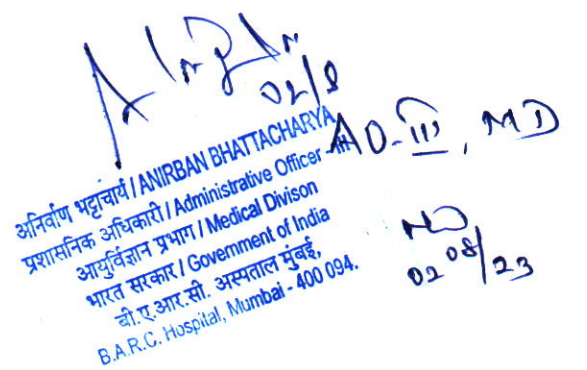 02/8
अनिर्वाण भट्टाचार्य / ANIRBAN BHATTACHARYA
प्रशासनिक अधिकारी / Administrative Officer -III
आयुर्विज्ञान प्रभाग / Medical Divison
भारत सरकार / Government of India
बी.ए.आर.सी. अस्पताल मुंबई,
B.A.R.C. Hospital, Mumbai - 400 094.
AO-III, MD
02/08/23